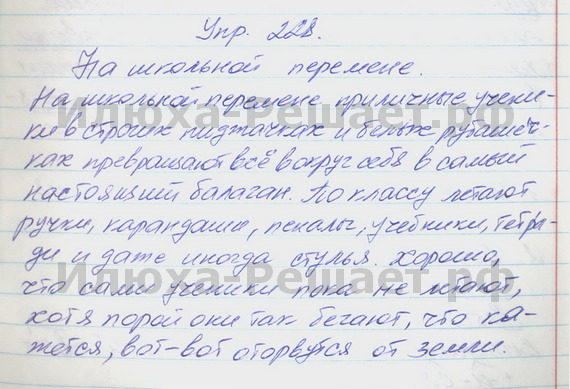 Упр. 228.
На школьной перемене.
На школьной перемене приличные учени-
ки в строгих пиджачках и белых рубашеч-
ках превращают всё вокруг себя в самый
настоящий балаган. По классу летают
ручки, карандаши, пеналы, учебники, тетра-
ди и даже иногда стулья. Хорошо,
что сами ученики пока не летают,
хотя порой они так бегают, что ка-
жется, вот-вот оторвутся от земли.
Илюха-Решает.рф
Илюха-Решает.рф